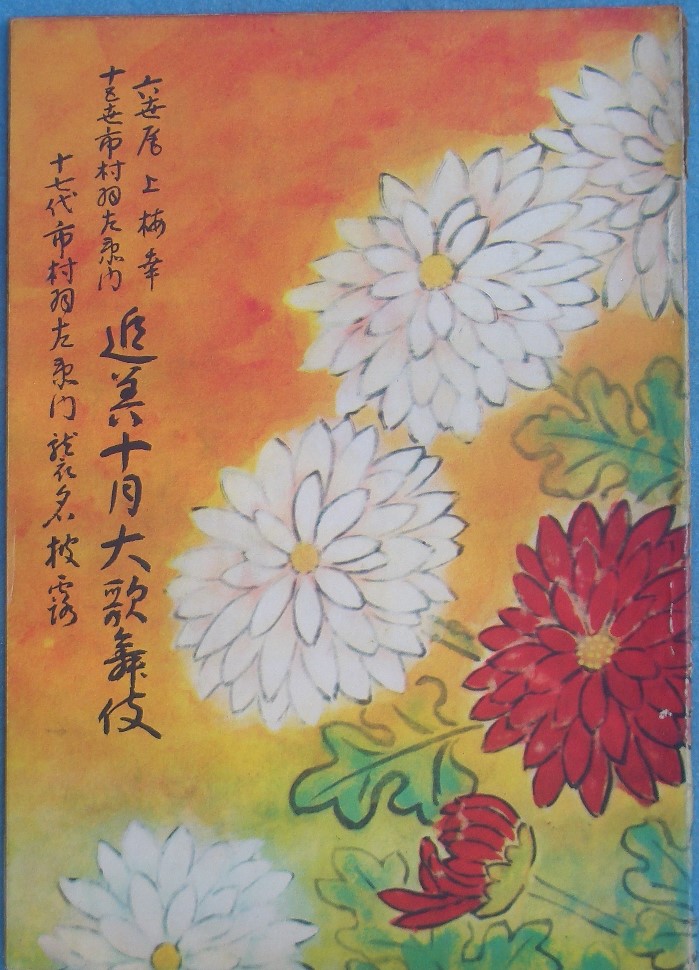 六世尾上梅幸
十五世市村羽左衛門
追善十月大歌舞伎
十七代市村羽左衛門襲名披露